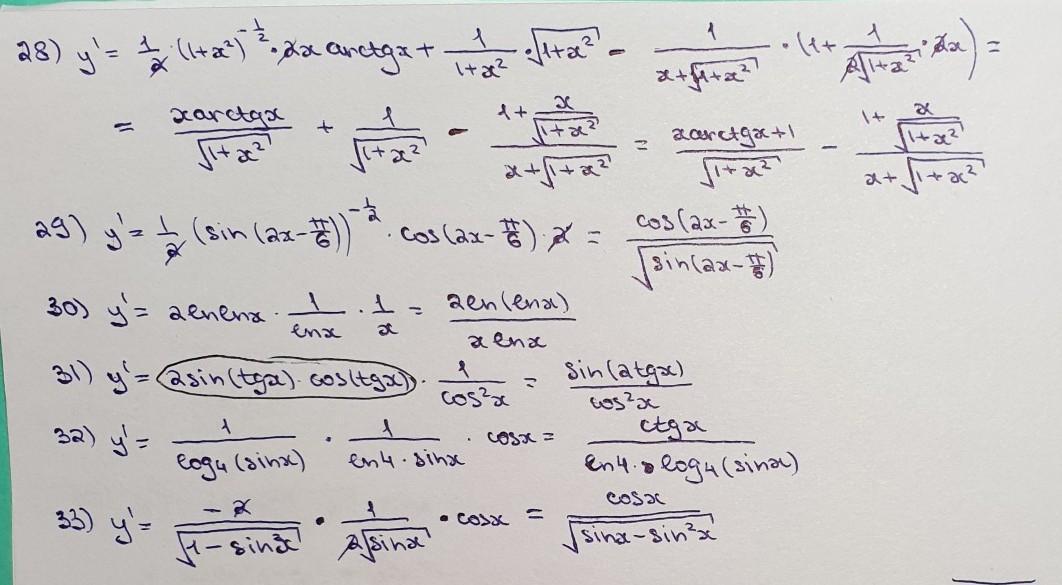 28) y' = 1/2 · (1+x²)^(-1/2) · 2x arctgx + 1/(1+x²) · √(1+x²) - 1/(x+√(1+x²)) · (1 + 1/(2√(1+x²)) · 2x) =
= xarctgx/√(1+x²) + 1/√(1+x²) - (1 + x/√(1+x²))/(x+√(1+x²)) = (xarctgx+1)/√(1+x²) - (1 + x/√(1+x²))/(x+√(1+x²))
29) y' = 1/2 (sin(2x-π/6))^(-1/2) · cos(2x-π/6) · 2 = cos(2x-π/6)/√(sin(2x-π/6))
30) y' = 2lnlnx · 1/lnx · 1/x = 2ln(lnx)/(x lnx)
31) y' = 2sin(tgx) · cos(tgx) · 1/cos²x = sin(2tgx)/cos²x
32) y' = 1/log₄(sinx) · 1/(ln4 · sinx) · cosx = ctgx/(ln4 · log₄(sinx))
33) y' = -2/√(1-sinx) · 1/(2√sinx) · cosx = cosx/√(sinx-sin²x)